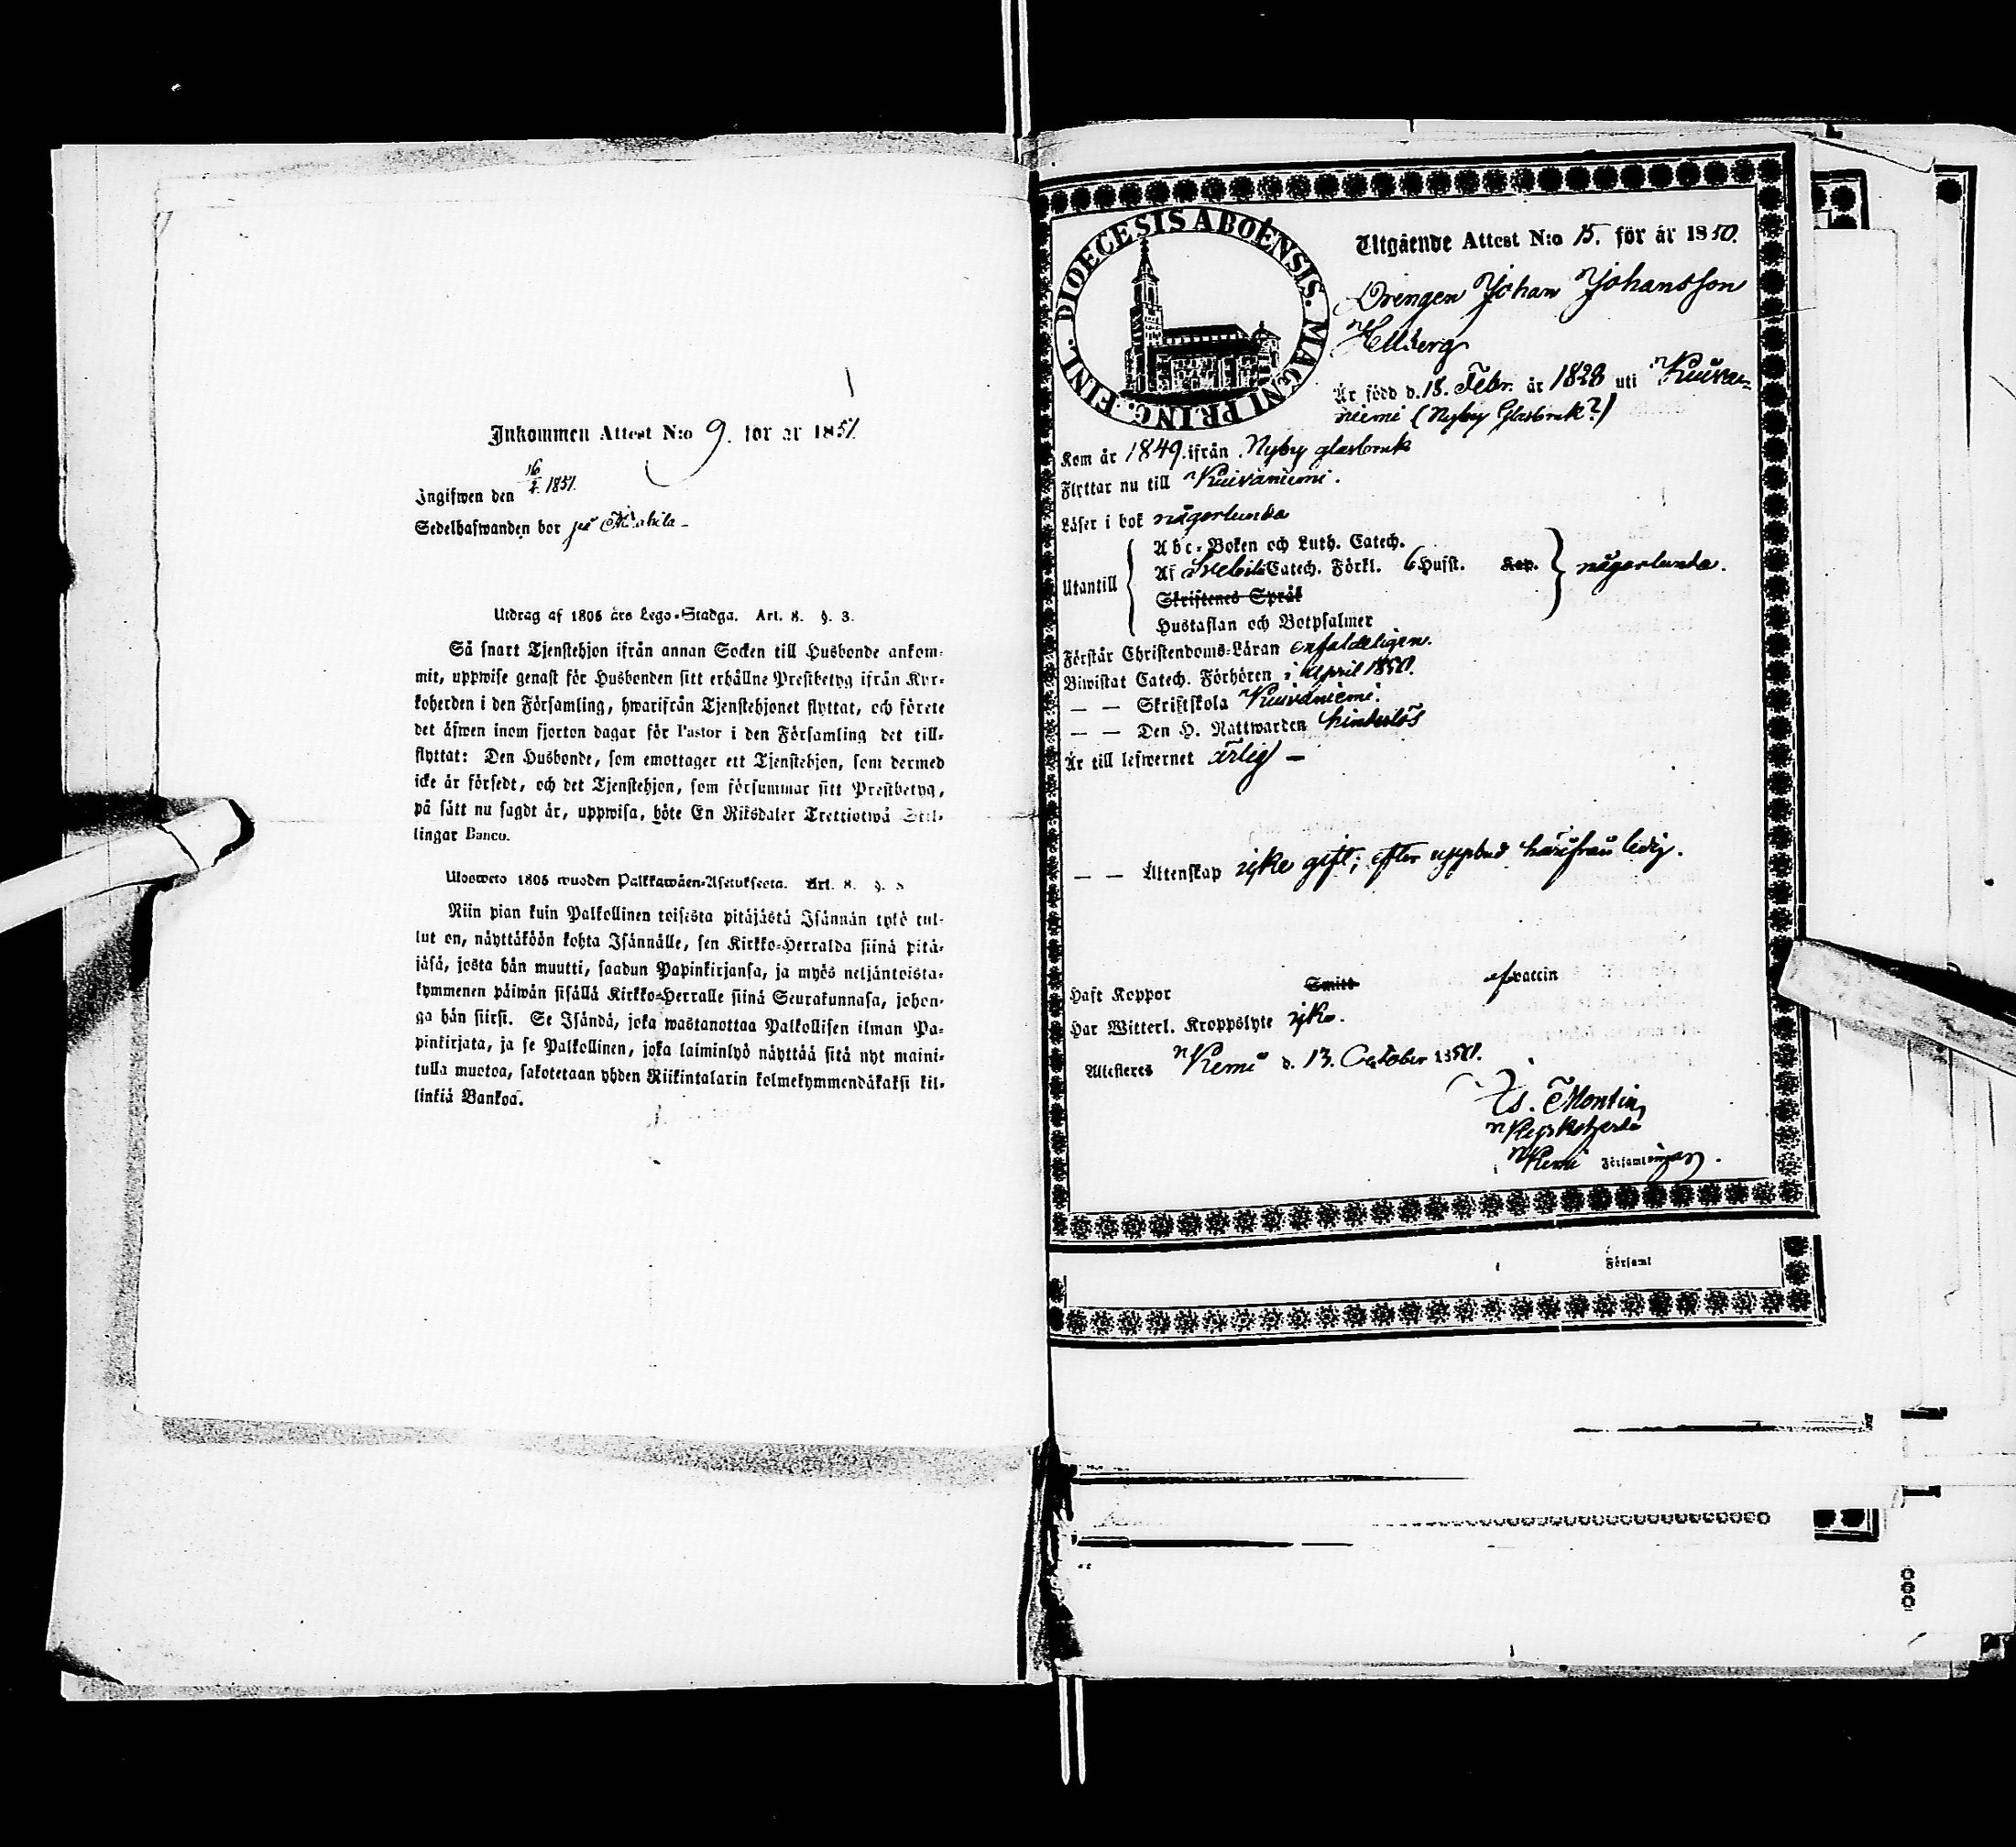 Inkommen Attest N:o 9. för år 1851.
Ingifwen den 16/4 1851.
Sedelhafwanden bor på
Utdrag af 1805 års Lego-Stadga. Art. 8. §. 3.
Så snart Tjenstehjon ifrån annan Socken till Husbonde ankom-
mit, uppwise genast för Husbonden sitt erhållne Prestbetyg ifrån Kyr-
koherden i den Församling, hwarifrån Tjenstehjonet flyttat, och förete
det äfwen inom fjorton dagar för Pastor i den Församling det till-
flyttat: Den Husbonde, som emottager ett Tjenstehjon, som dermed
icke är försedt, och det Tjenstehjon, som försummar sitt Prestbetyg,
på sätt nu sagdt är, uppwisa, böte En Riksdaler Trettiotwå Skil-
lingar Banco.
Ulosweto 1805 wuoden Palkkawäen-Asetuksesta. Art. 8. §.
Niin pian kuin Palkollinen toisesta pitäjästä Isännän työlö tul-
lut on, näyttäköön kohta Isännälle, sen Kirkko-Herralda siinä pitä-
jäsä, josta hän muutti, saadun Papinkirjansa, ja myös neljäntoista-
kymmenen päiwän sisällä Kirkko-Herralle siinä Seurakunnasa, johon-
ga hän siirsi. Se Isändä, joka wastanottaa Palkollisen ilman Pa-
pinkirjata, ja se Palkollinen, joka laiminlyö näyttää sitä nyt maini-
tulla muotoa, sakotetaan yhden Riikintalarin kolmekymmendäkaksi kil-
linkiä Bankoa.
DIOECESIS ABOËNSIS. MAGNI PRINC. FINL.
Utgående Attest N:o 15. för år 1850.
Drengen Johan Johansson
Hellberg
Är född d. 18. Febr. år 1828 uti Kuiva-
niemi (Nyby Glasbruk?)
Kom år 1849. ifrån Nyby glasbruk
Flyttar nu till Kuivaniemi.
Läser i bok någorlunda
Utantill
Abc-Boken och Luth. Catech.
Af Svebilii Catech. Förkl. 6 Hufst. Kap. någorlunda.
Skriftenes Språk
Hustaflan och Botpsalmer
Förstår Christendoms-Läran enfaldeligen.
Biwistat Catech. Förhören i April 1850.
— — Skriftskola Kuivaniemi.
— — Den H. Nattwarden hinderlös
Är till lefwernet ärlig —
— — Äktenskap icke gift; efter uppbud härifrån ledig.
Haft Koppor Smitt vaccin
Har Witterl. Kroppslyte icke.
Attesteres Kemi d. 13. October 1850.
Es. Montin
Kyrkoherde
i Kemi Församlingar.
Församl